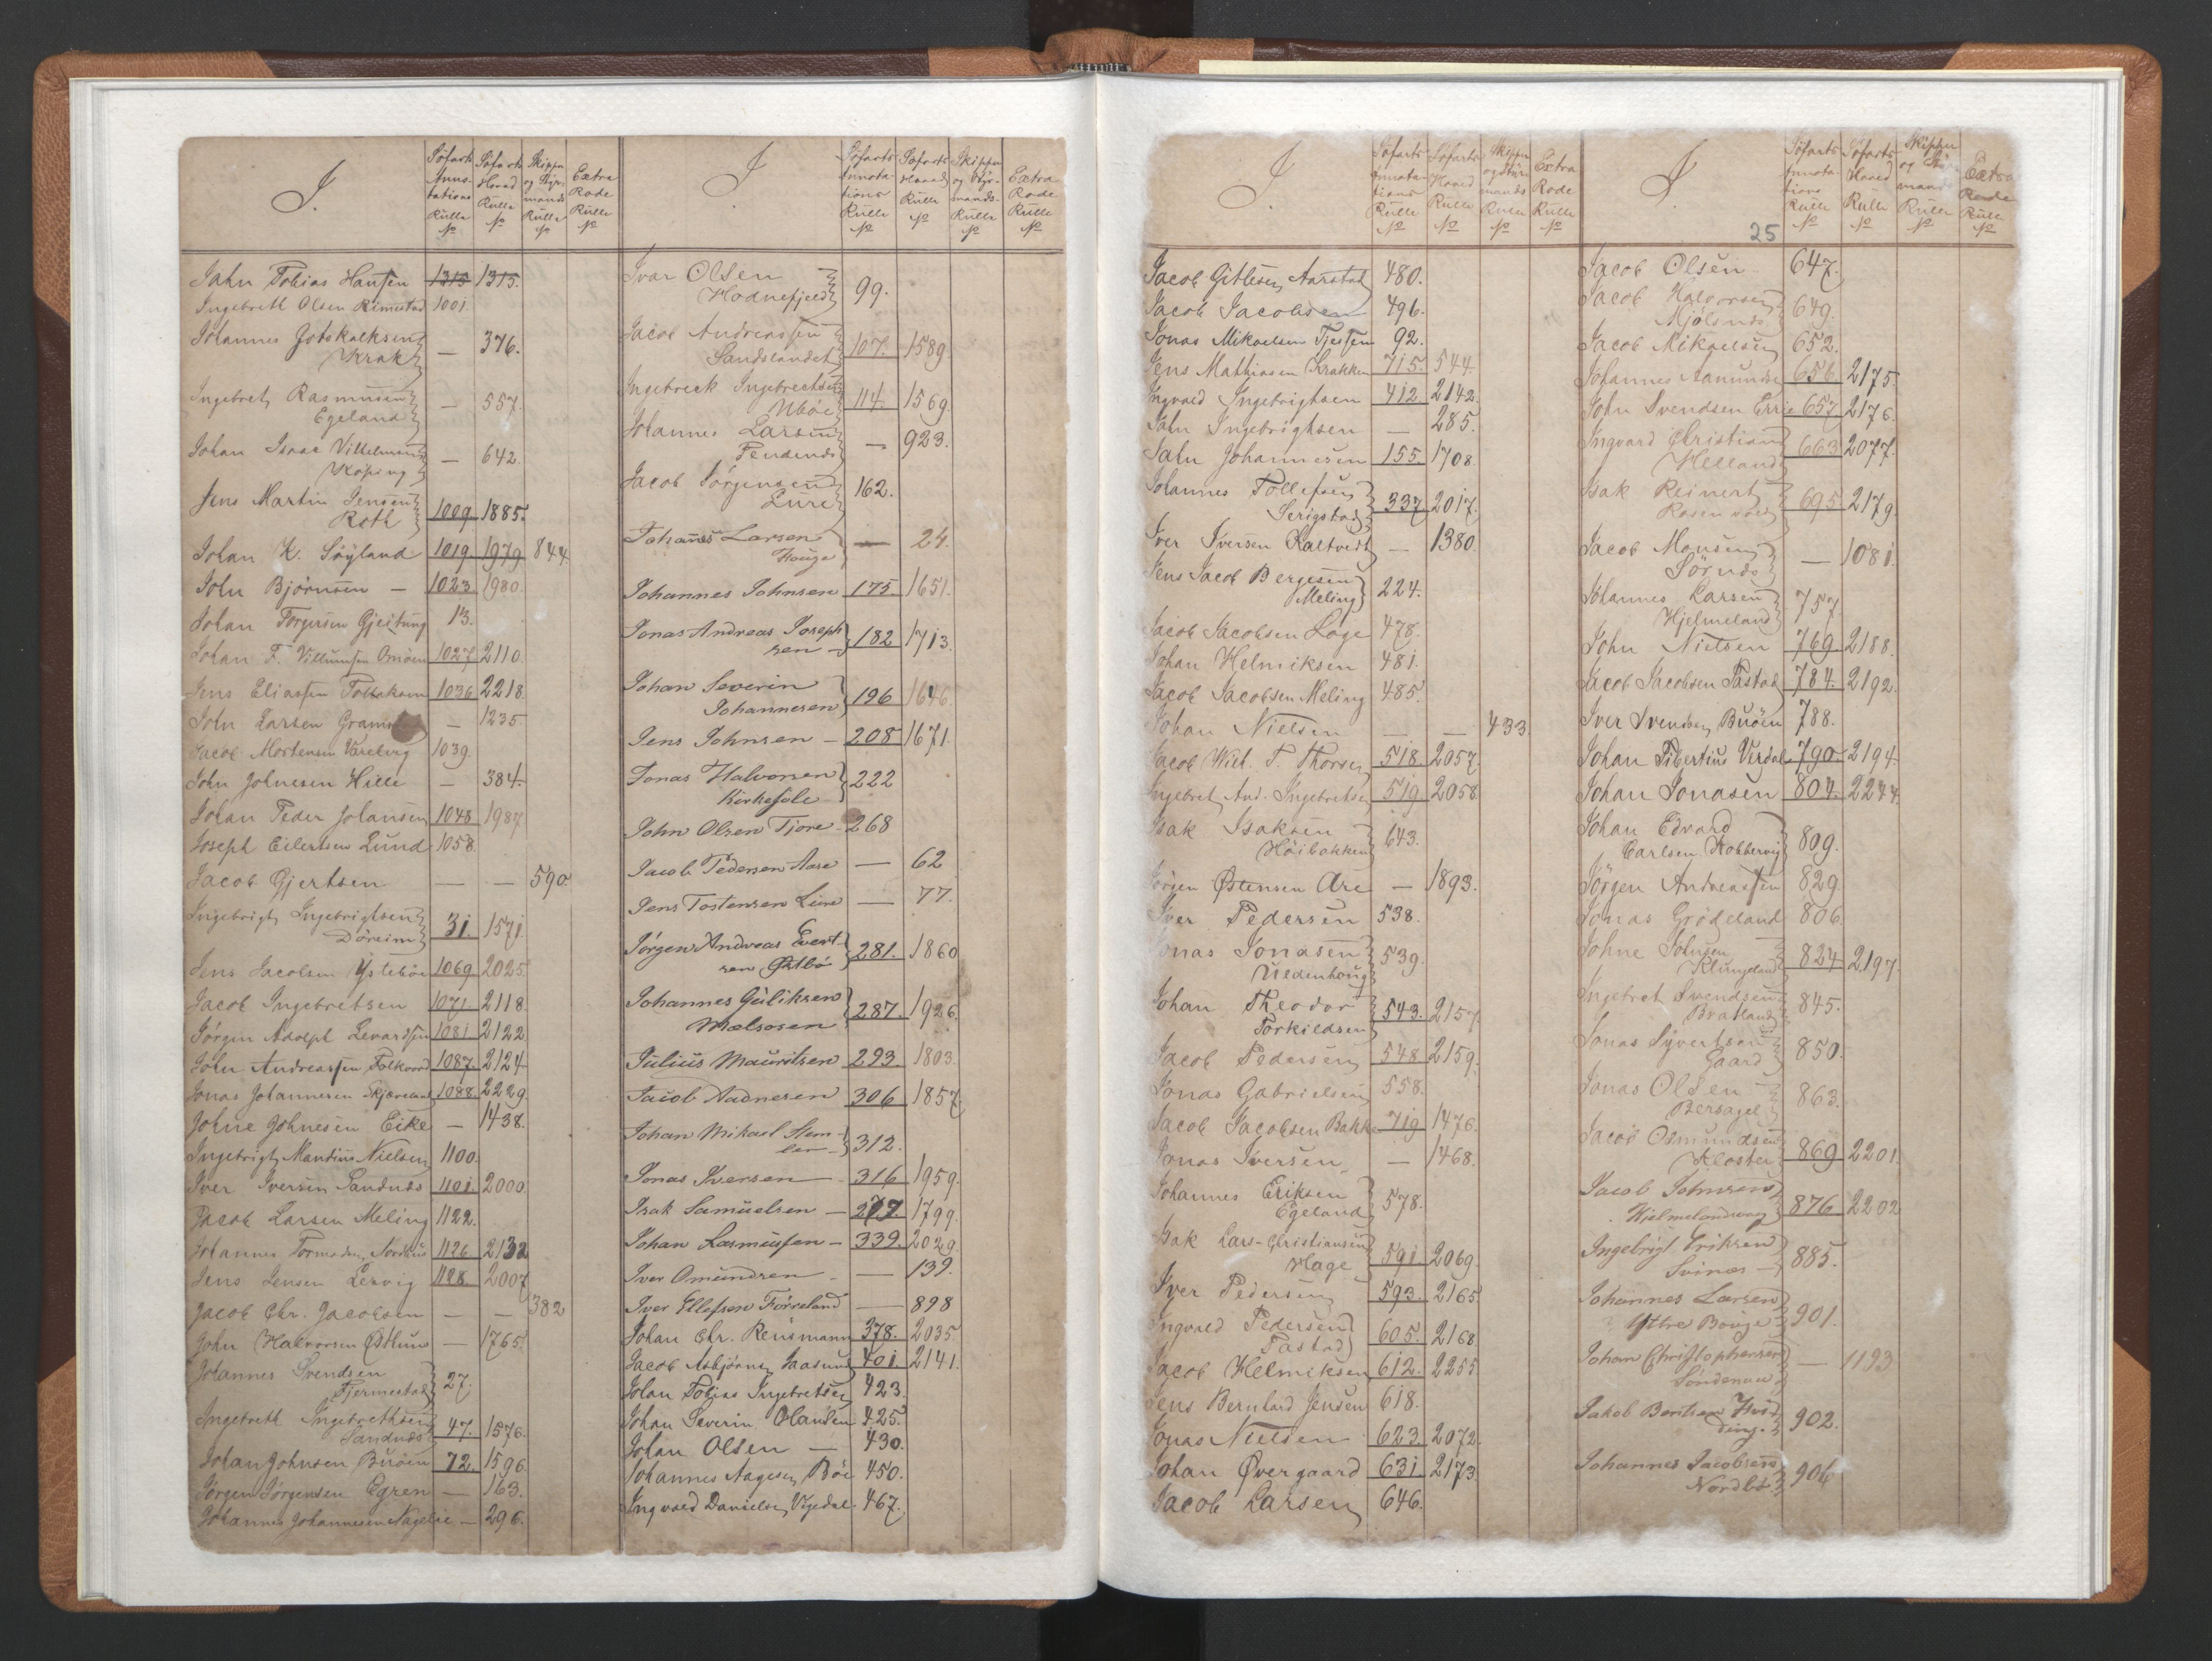 I.
Søfarts Annotations Rulle №
Søfarts Hoved Rulle №
Skipper og Styrmands Rulle №
Extra Rode Rulle №
Jahn Tobias Hansen 1315 1315.
Ingebreth Olsen Rimestad 1001.
Johannes Gotskalksen
Krak — 376.
Ingebret Rasmusen
Egeland — 557.
Johan Isaac Vilhelmsen
Køping — 642.
Jens Martin Jensen
Roth 1009 1885.
Johan K. Søyland 1019 1979 844
John Bjørnsen — 1023 1980.
Johan Torgersen Gjeitung 13.
Johan F. Villumsen Omøen 1027 2110
Jens Eliassen 1036 2218
John Larsen — 1235
Jacob Mortensen Vareberg 1039.
John Johnesen Hille — 384.
Johan Peder Johansen 1048 1987
Joseph Eilertsen Lund 1058.
Jacob Gjertsen — — 590.
Ingebrigt Ingebrigtsen
Døreim 31. 1571.
Jens Jacobsen Ystebøe 1069 2025.
Jacob Ingebretsen 1071 2118
Jørgen Adolph Levardsen 1081 2122
John Andreassen Folkvord 1087. 2124
Jonas Johannesen Skjæveland 1088 2229
Johne Johnesen Eike — 1438.
Ingebrigt Mandius Nielsen 1100.
Iver Iversen Sandnes 1101. 2000
Jacob Larsen Meling 1122.
Johannes Tormodsen Nordhus 1126 2132
Jens Jensen Lervig 1128. 2007
Jacob Chr. Jacobsen — — 382
John Halvorsen Østhus — 1765.
Johannes Svendsen
Fjermestad 27.
Ingebreth Ingebrethsen
Sandnes 47. 1576.
Johan Johnsen Buøen 72. 1596.
Jørgen Jørgensen Egren — 163.
Johannes Johannesen — 296.
I.
Søfarts Annotations Rulle №
Søfarts Hoved Rulle №
Skipper og Styrmands-Rulle №
Extra Rode Rulle №
Ivar Olsen
Hodnefjeld 99.
Jacob Andreassen
Sandslandet 107. 1589.
Ingebreck Ingebrechtsen
Ubøe 114. 1569.
Johannes Larsen
— 923.
Jacob Jørgensen
Lure 162.
Johannes Larsen
Houge — 24.
Johannes Johnsen 175. 1651.
Jonas Andreas Joseph
sen — 182 1713.
Johan Severin
Johannesen 196 1646
Jens Johnsen — 208 1671.
Jonas Halvorsen
222
John Olsen Tjore 268
Jacob Pedersen Aase — 62
Jens Tostensen Lure — 77.
Jørgen Andreas Evert-
sen Østbø 281. 1860
Johannes Guliksen
Mælsosen 287 1926.
Julius Mauritsen 293. 1803.
Jacob Aadnesen 306 1857
Johan Mikael Stem-
ler 312.
Jonas Iversen 316 1959.
Isak Samuelsen — 277. 1799.
Johan Rasmussen — 339. 2029.
Iver Omundsen — 139.
Iver Ellefsen Førreland — 898
Johan Chr. Reusmann 378. 2035.
Jacob Asbjørnsen Haasund 401 2141.
Johan Tobias Ingebretsen 423.
Johan Severin Olausen 425.
Johan Olsen — 430.
Johannes Aagesen Bøe 450.
Ingvald Danielsen Vigedal 467.
I.
Søfarts Annotations Rulle №
Søfarts Hoved Rulle №
Skipper og Styrmands Rulle №
Extra Rode Rulle №
Jacob Gitlesen Aarstad 480.
Jacob Jacobsen 496.
Jonas Mikaelsen Tjessem 92.
Jens Mathiasen Krakken 715. 544.
Ingvald Ingebrightsen 412. 2142
John Ingebrightsen — 285.
John Johannesen 155. 1708.
Johannes Tollefsen
Serigstad 337. 2017.
Iver Iversen Kaltvedt — 1380.
Jens Jacob Bergesen
Meling 224.
Jacob Jacobsen Loge 478.
Johan Helmiksen 481.
Jacob Jacobsen Meling 485.
Johan Nielsen — — 433
Jacob Wil. T. Thorsen 518. 2057
Ingebret And. Ingebretsen 519 2058
Isak Isaksen
Høibakken 643.
Jørgen Østensen Are — 1893.
Iver Pedersen 538.
Jonas Jonasen
539.
Johan Theodor
Torkildsen 543. 2157.
Jacob Pedersen 548 2159.
Jonas Gabrielsen 558.
Jacob Jacobsen Bakke 719 1476.
Jonas Iversen — 1468.
Johannes Eriksen
Egeland 578.
Isak Lars-Christiansen
Hage 591 2069.
Iver Pedersen 593. 2165.
Ingvald Pedersen
Tastad 605. 2168
Jacob Helmiksen 612. 2255
Jens Bernhard Jensen 618.
Jonas Nielsen 623. 2072.
Johan Øvergaard 631. 2173.
Jacob Larsen 646.
I.
Søfarts Annotations Rulle №
Søfarts Hoved Rulle №
Skipper og mands Rulle №
Extra Rode Rulle №
25
Jacob Olsen 647.
Jacob Halvorsen
Mjølsnes 649.
Jacob Mikaelsen 652.
Johannes Aanundsen 656 2175.
John Svendsen Erri 657. 2176.
Ingvard Christian
Helland 663 2077.
Isak Reinert
Rosenvold 695 2179.
Jacob Monsen
Sørnes — 1081.
Johannes Larsen
Hjelmeland 757.
John Nielsen 769. 2188.
Jacob Jacobsen Tastad 784. 2192.
Iver Svendsen Buøen 788.
Johan Tibertius Verdal 790. 2194.
Johan Jonasen 804. 2244.
Johan Edvard
Carlsen Kobbervig 809.
Jørgen Andreassen 829.
Jonas Grødeland 806.
Johne Johnsen
Klungeland 824 2197.
Ingebret Svendsen
Bratland 845.
Jonas Syvertsen
Gaard 850.
Jonas Olsen
Bersagel 863.
Jacob Osmundsen
Kloster 869 2201
Jacob Johnsen
Hjelmelandsvaag 876 2202
Ingebrigt Eriksen
Svines — 885.
Johannes Larsen
Yttre Bouge 901.
Johan Christophersen
Søndenaa — 1193
Jakob Bentsen Hvid-
ding. 902.
Johannes Jacobsen
Nordbø 906